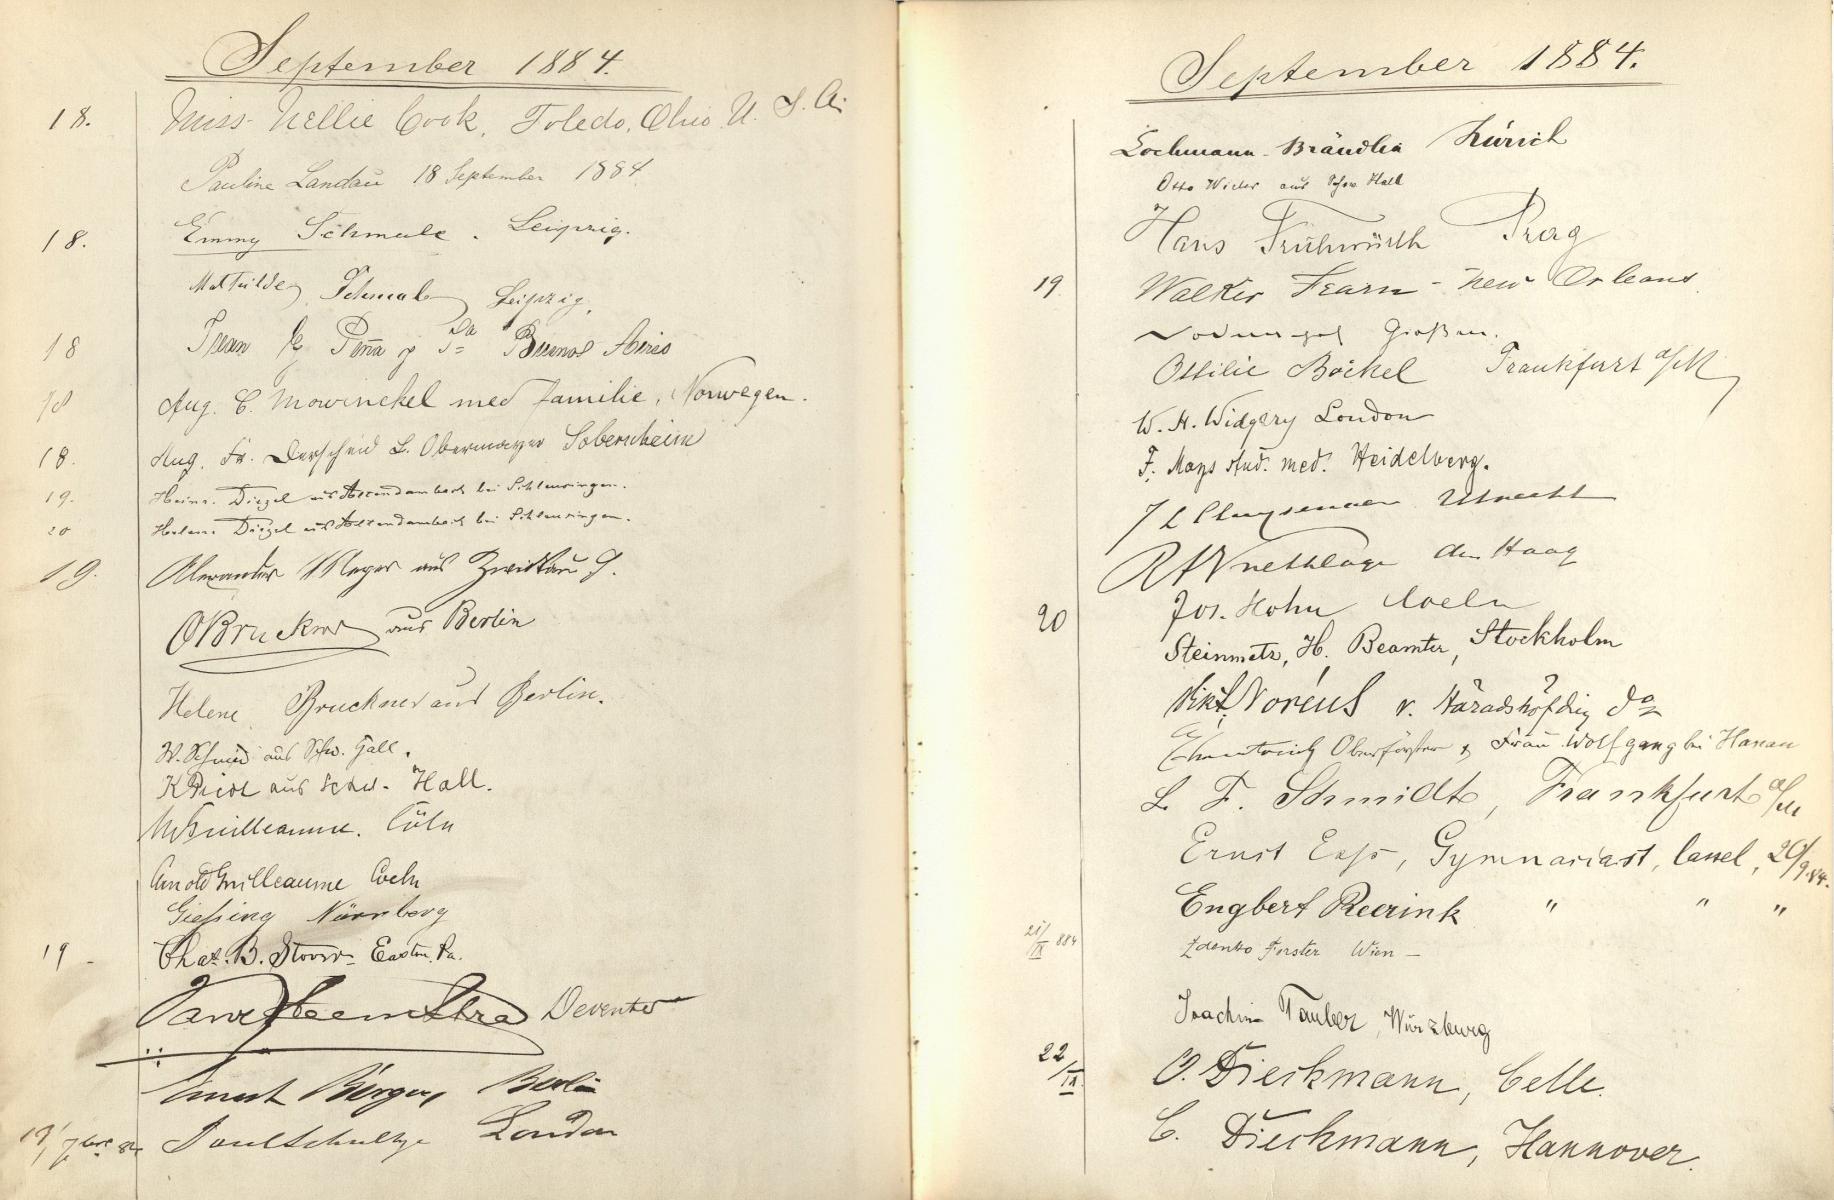 September 1884.
18. Miss Nellie Cook, Toledo, Ohio U. S. A.
Pauline Landau 18 September 1884
18. Emmy Schmale. Leipzig.
Mathilde Schmale Leipzig.
18 Juan G Peña y Sa Buenos Aires
18 Aug. C. Mowinckel med familie, Norwegen.
18. Aug. Fr. L. Obermayer Sobernheim
19. Heinr. Diezel aus bei Schleusingen.
20 Diezel aus bei Schleusingen.
19. Alexander Meyer aus Zwickau
O Bruckner aus Berlin
Helene Bruckner aus Berlin.
W. Schmid aus Schw. Hall.
K aus Schw. Hall.
Guilleaume. Cöln
Arnold Guilleaume Coeln
Giessing Nürnberg
19 - Chas. B. Easton, Pa.
van Heemstra Deventer
Ernst Berger, Berlin
19/7bre 84 Paul Schultze London
September 1884.
Lochmann-Brändlin Zürich
Otto aus Schw. Hall
Hans Frühwirth Prag
19 Walker Fearn - New Orleans
Ottilie Böckel Frankfurt a/M
W. H. Widgery London
F. Mays stud. med. Heidelberg.
J L Utrecht
den Haag
20 Jos. Hohn Coeln
Steinmetz, H. Beamter, Stockholm
Vikt. Noréus v. Häradshöfding do
Oberförster & Frau Wolfgang bei Hanau
L. F. Schmidt, Frankfurt a/M
Ernst, Gymnasiast, Cassel, 20/9.84.
Engbert Reerink " " "
21/IX 884 Zdenko Forster Wien -
Joachim Tauber, Würzburg
22/IX. O. Dieckmann, Celle.
C. Dieckmann, Hannover.